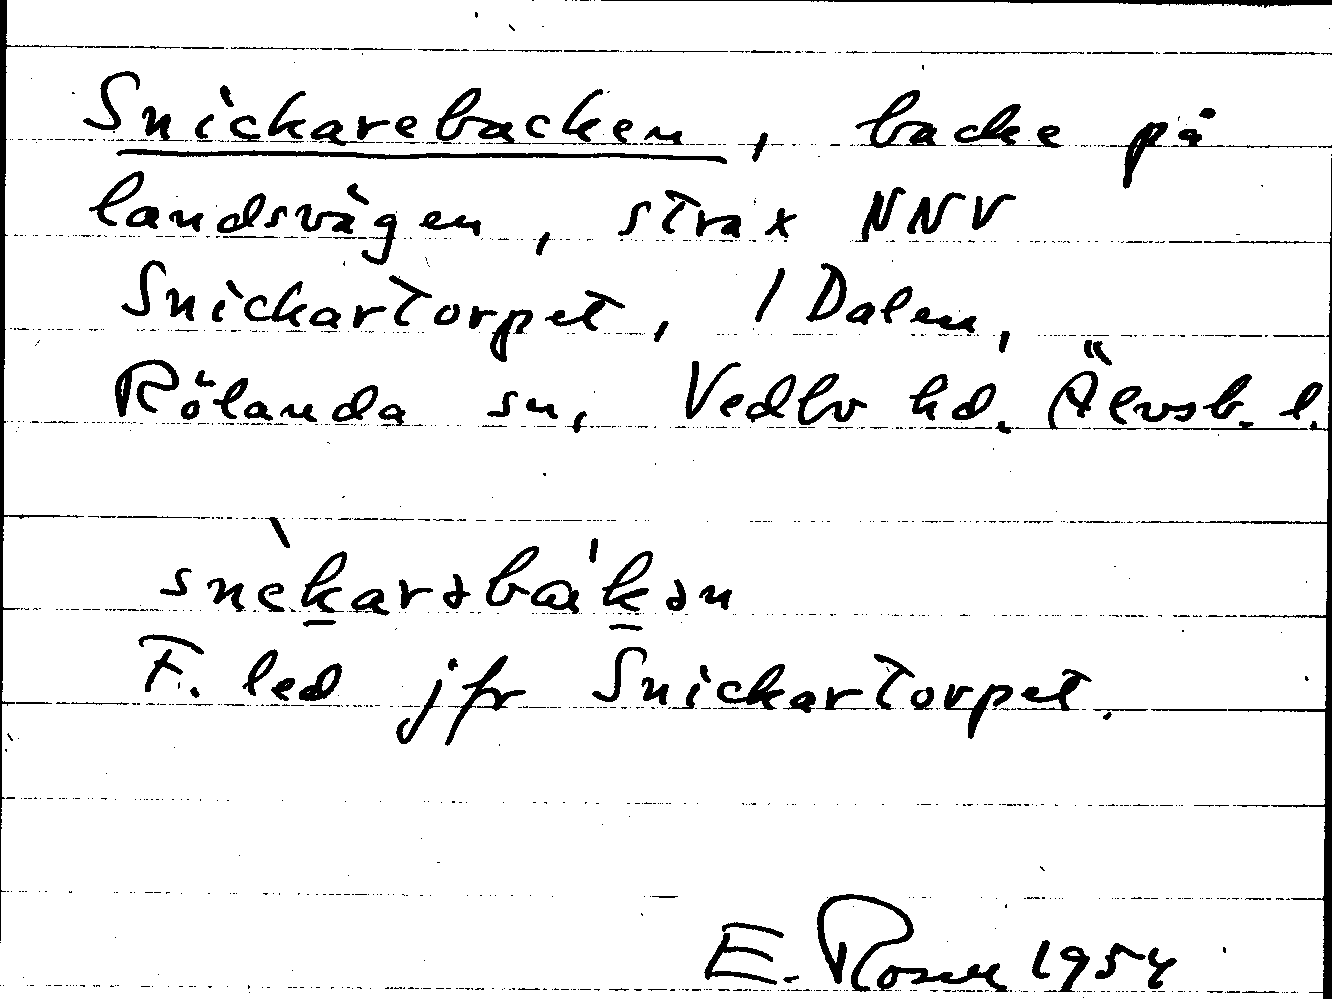 Snickarebacken, backe på
landsvägen, strax NNV
Snickartorpet, 1 Dalen,
Rölanda sn, Vedbo hd. Älvsb. l.
snèkarəbàˈkən
F. led jfr Snickartorpet.
E. Rosen 1954